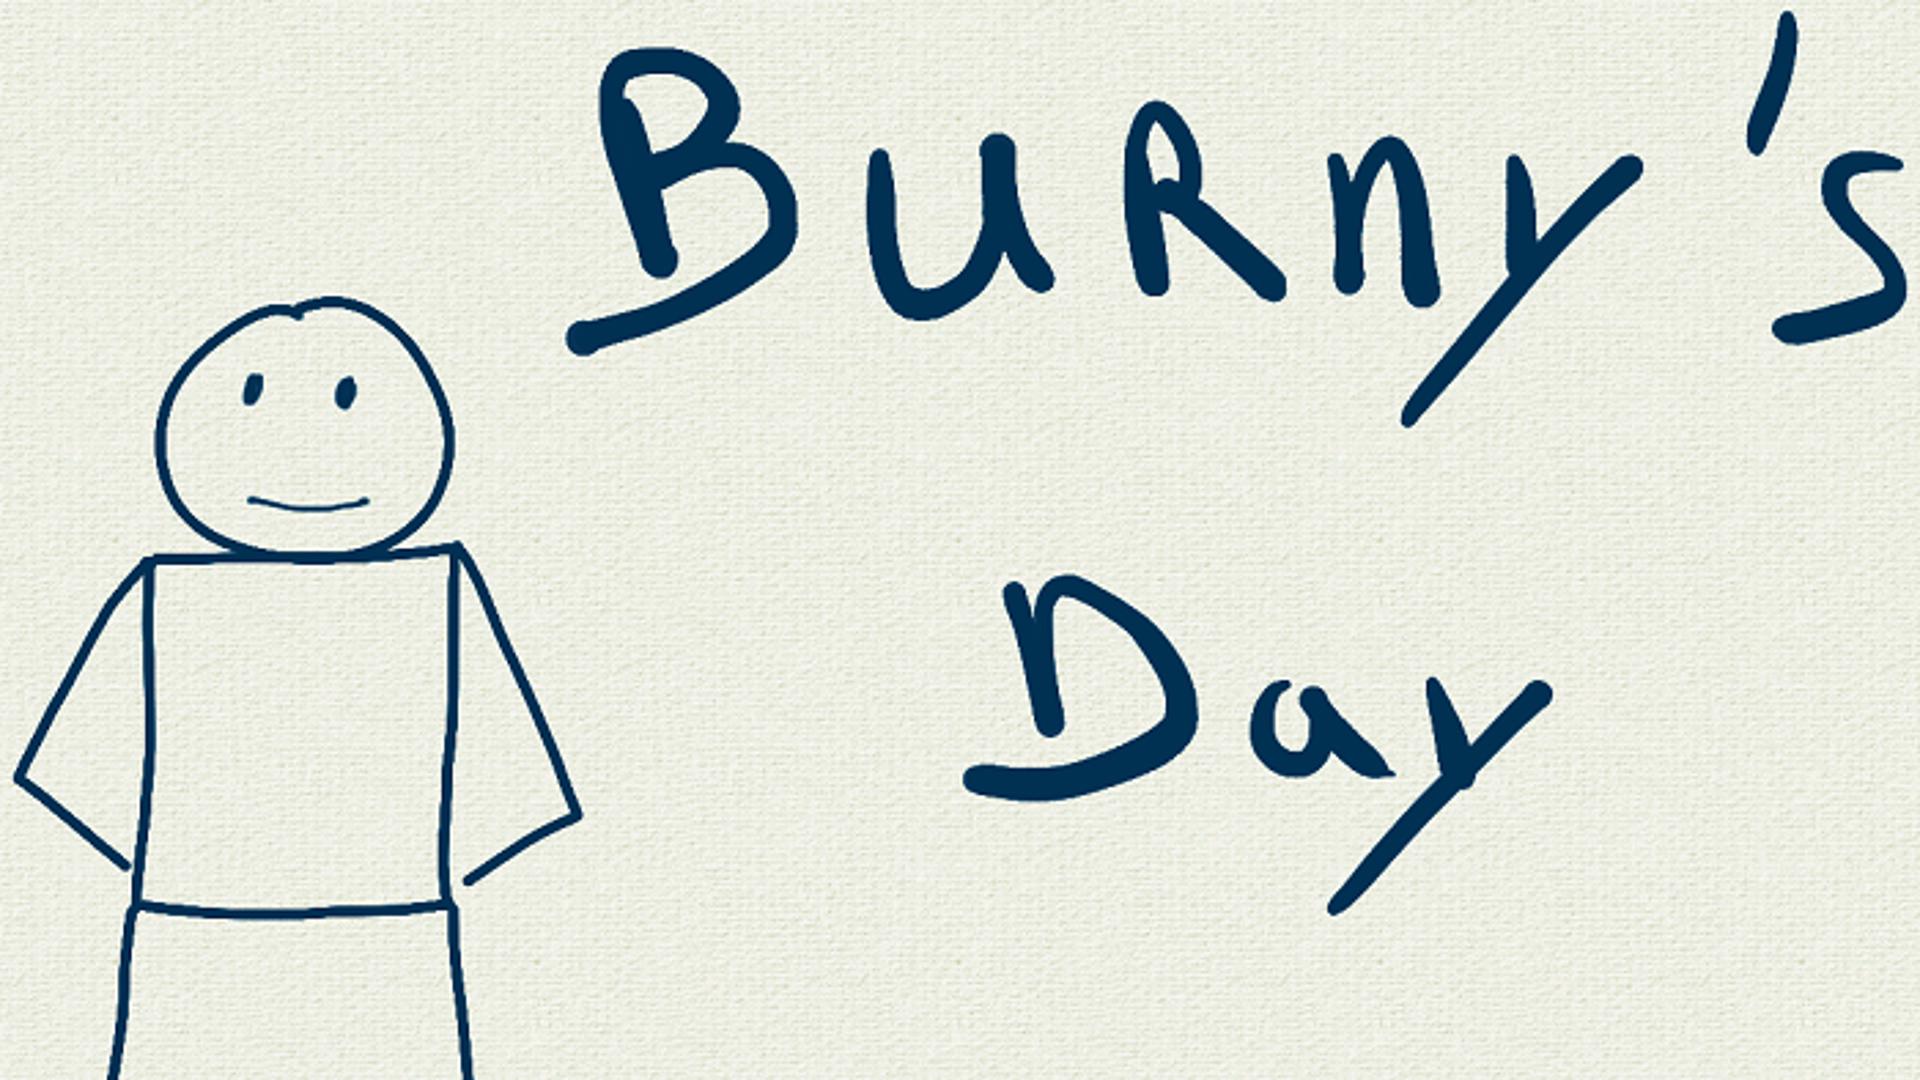 Burny's
Day